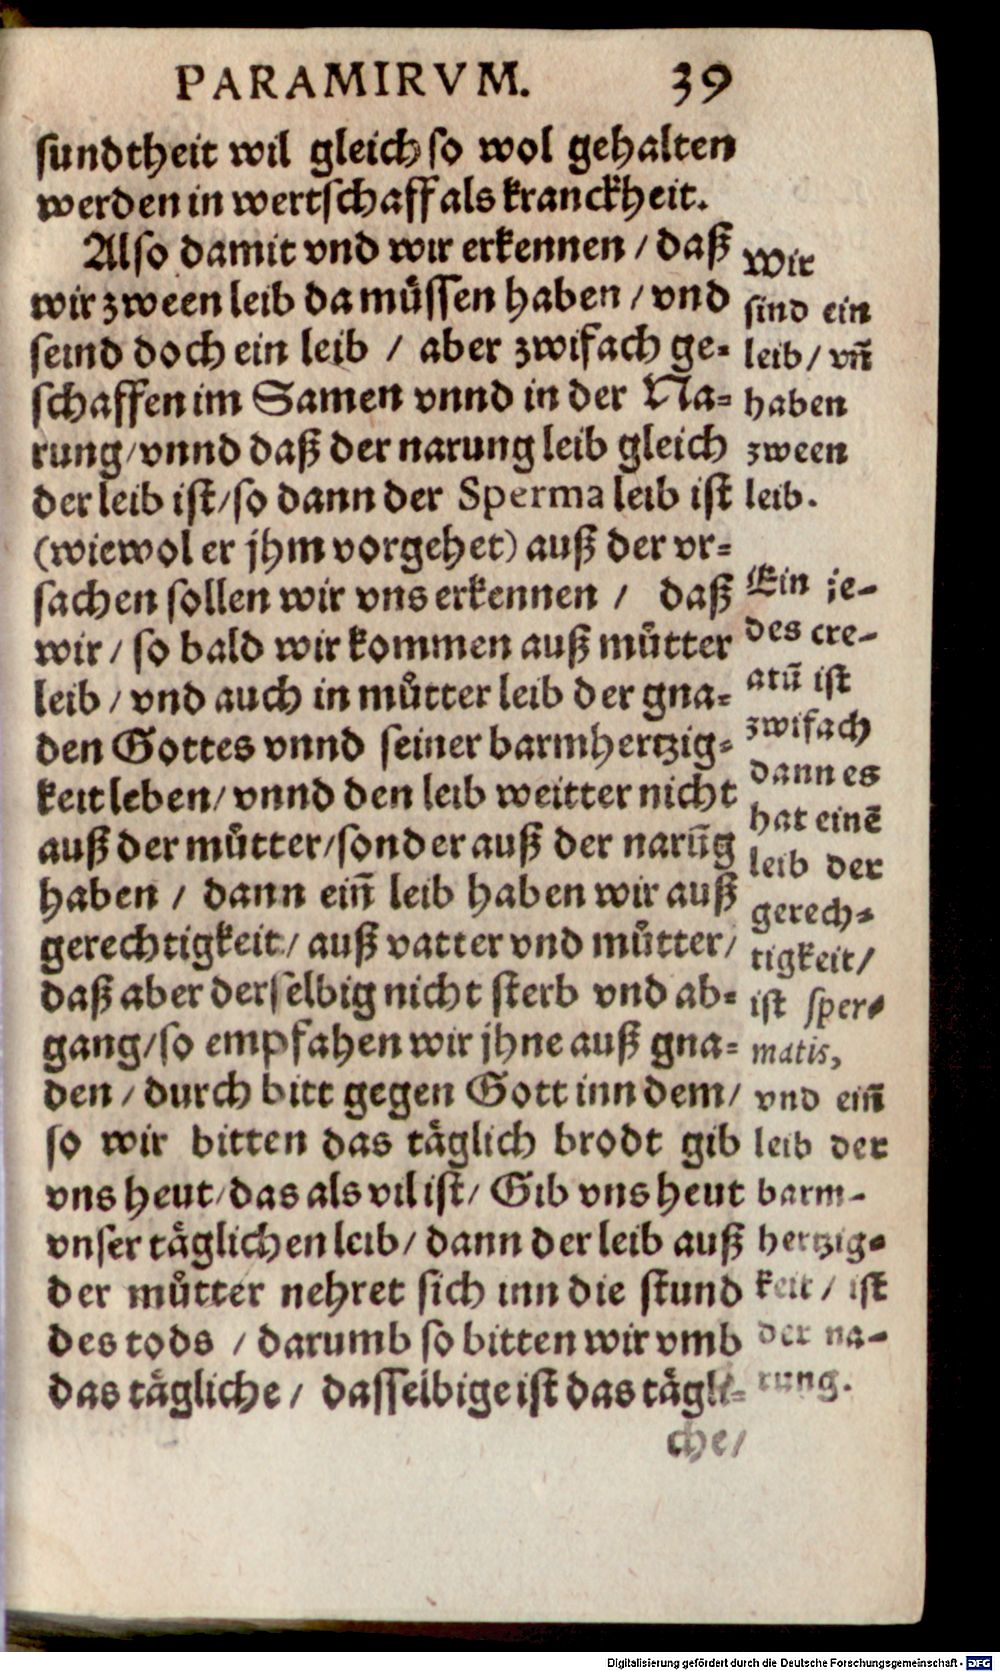 PARAMIRVM. 39
sundtheit wil gleich so wol gehalten
werden in wertschaff als kranckheit.
Also damit vnd wir erkennen / daß
wir zween leib da müssen haben / vnd
seind doch ein leib / aber zwifach ge-
schaffen im Samen vnnd in der Na-
rung / vnnd daß der narung leib gleich
der leib ist / so dann der Sperma leib ist
(wiewol er jhm vorgehet) auß der vr-
sachen sollen wir vns erkennen / daß
wir / so bald wir kommen auß muͦtter
leib / vnd auch in muͦtter leib der gna-
den Gottes vnnd seiner barmhertzig-
keit leben / vnnd den leib weitter nicht
auß der muͦtter / sonder auß der narūg
haben / dann ein̄ leib haben wir auß
gerechtigkeit / auß vatter vnd muͦtter /
daß aber derselbig nicht sterb vnd ab-
gang / so empfahen wir jhne auß gna-
den / durch bitt gegen Gott inn dem /
so wir bitten das täglich brodt gib
vns heut / das als vil ist / Gib vns heut
vnser täglichen leib / dann der leib auß
der muͦtter nehret sich inn die stund
des tods / darumb so bitten wir vmb
das tägliche / dasselbige ist das tägli-
che /
Wir
sind ein
leib / vn̄
haben
zween
leib.
Ein je-
des cre-
atū ist
zwifach
dann es
hat einē
leib der
gerech-
tigkeit /
ist sper-
matis,
vnd ein̄
leib der
barm-
hertzig-
keit / ist
der na-
rung.
Digitalisierung gefördert durch die Deutsche Forschungsgemeinschaft - DFG